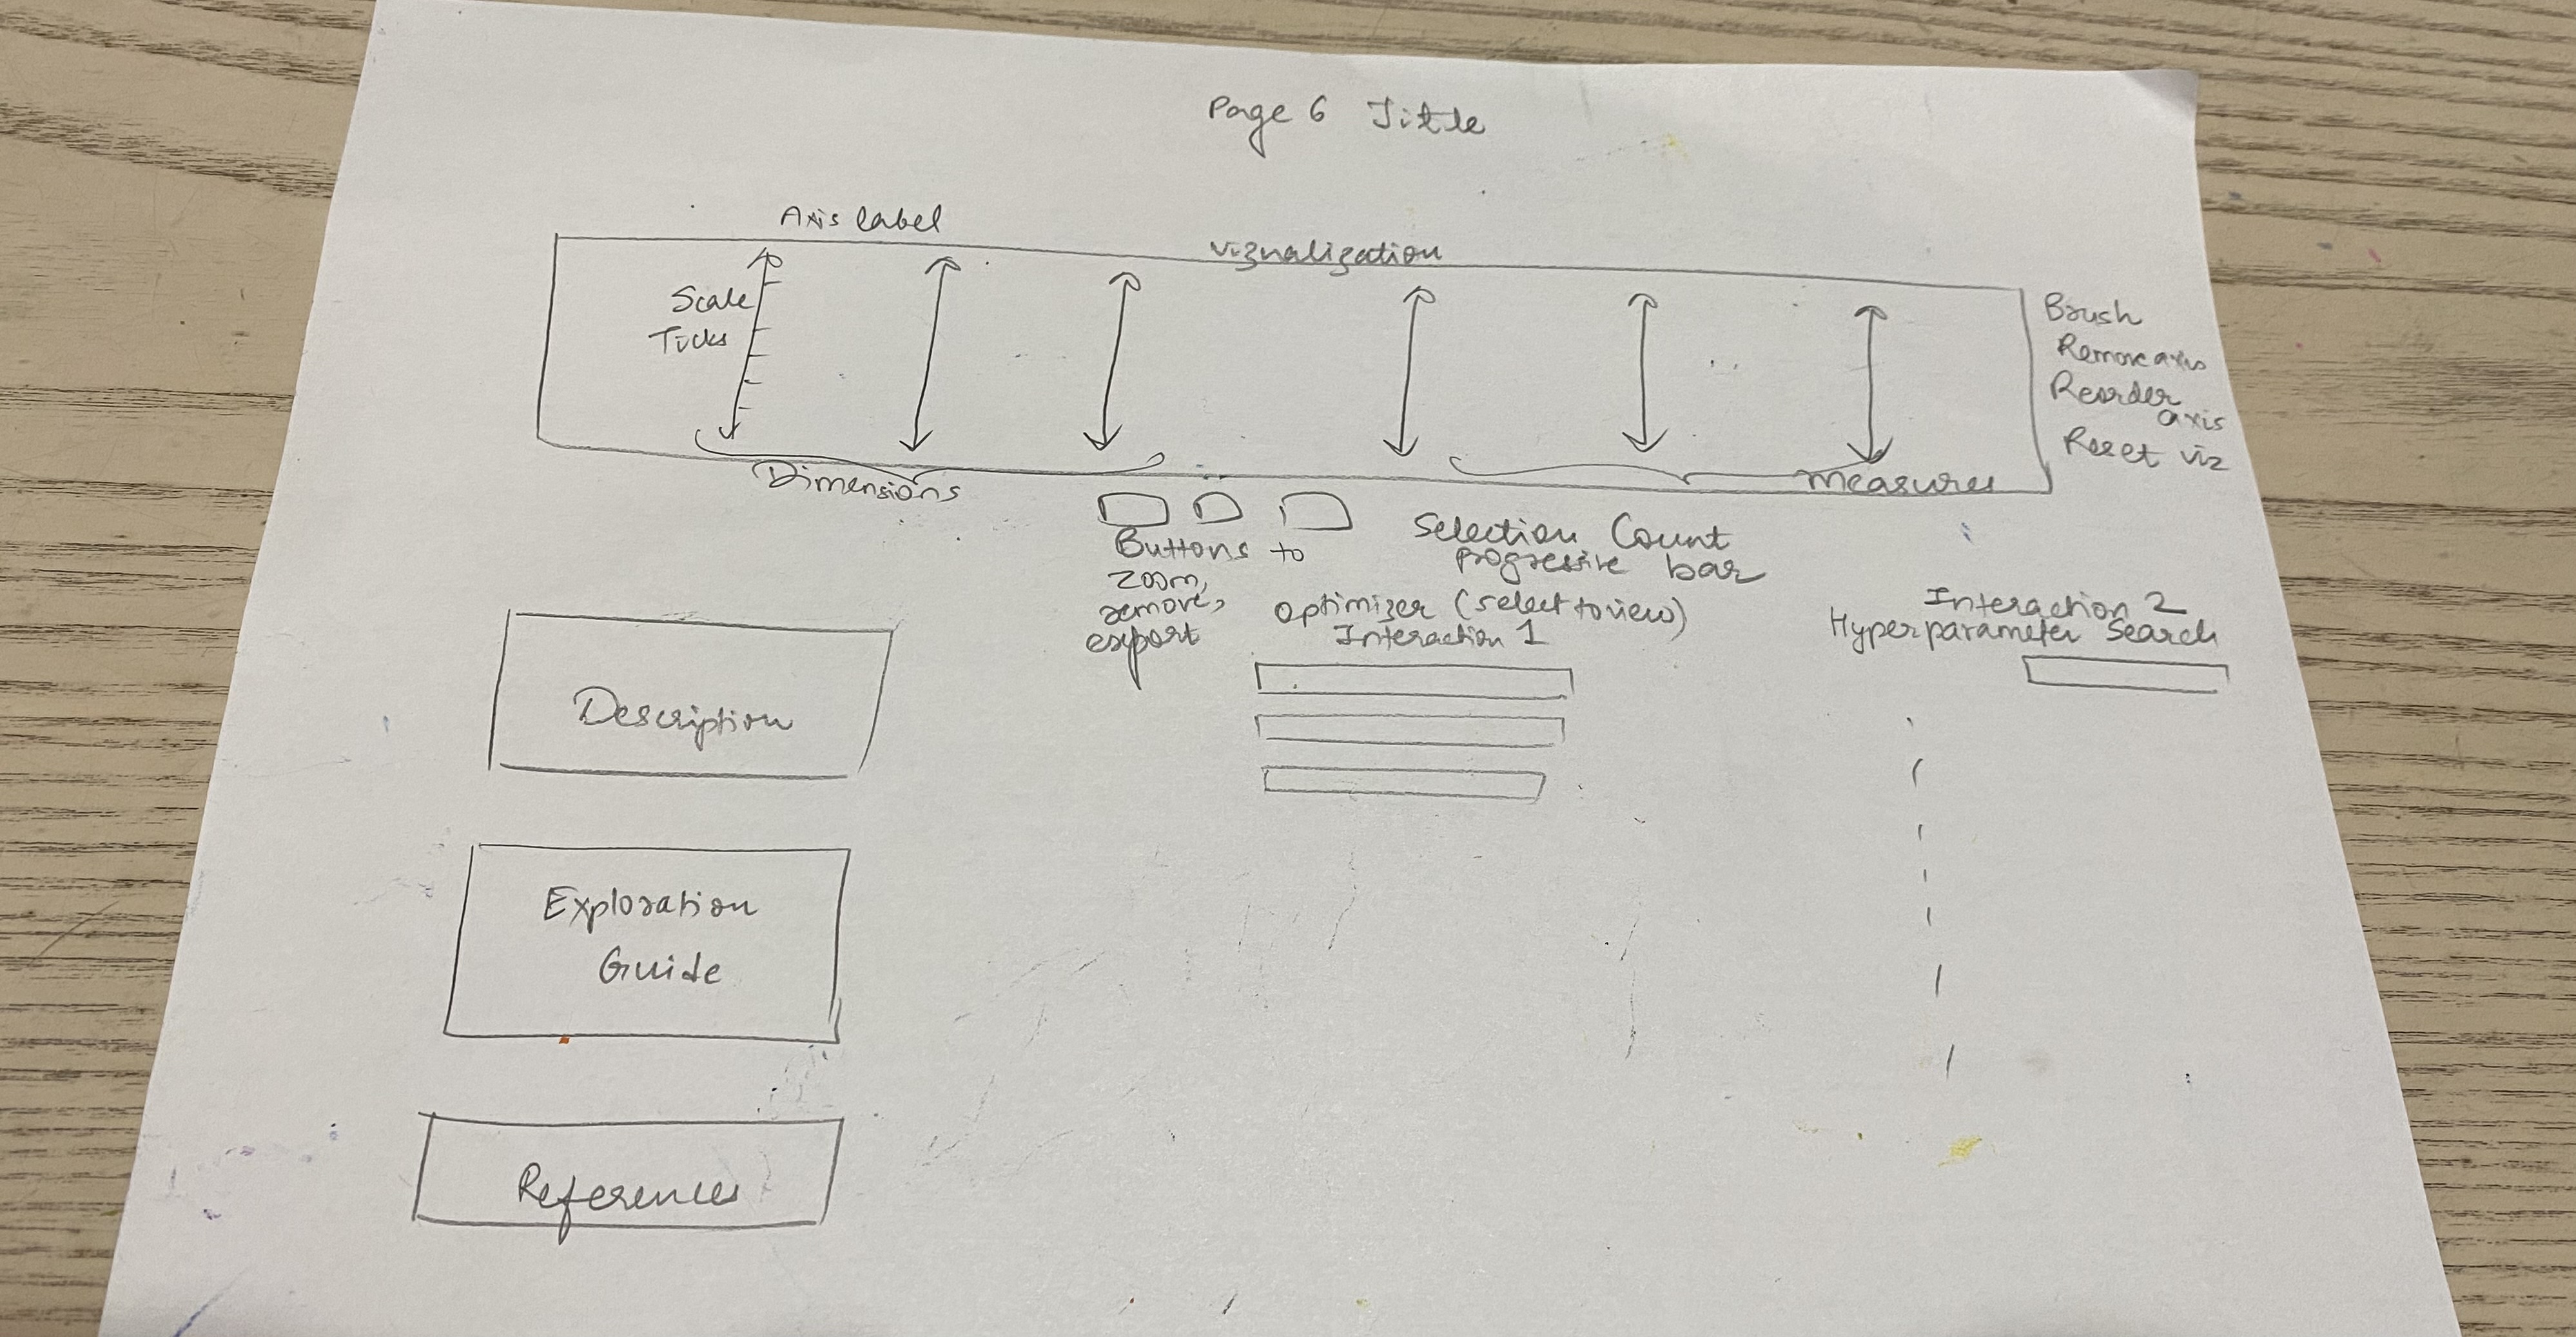 Page 6 Title
Axis label
viznalization
Scale
Ticks
Brush
Remove axis
Reorder
axis
Reset viz
Dimensions
Measures
Buttons to
zoom,
remove,
export
Selection Count
progressive bar
Optimizer (select to view)
Interaction 1
Interaction 2
Hyperparameter Search
Description
Exploration
Guide
References